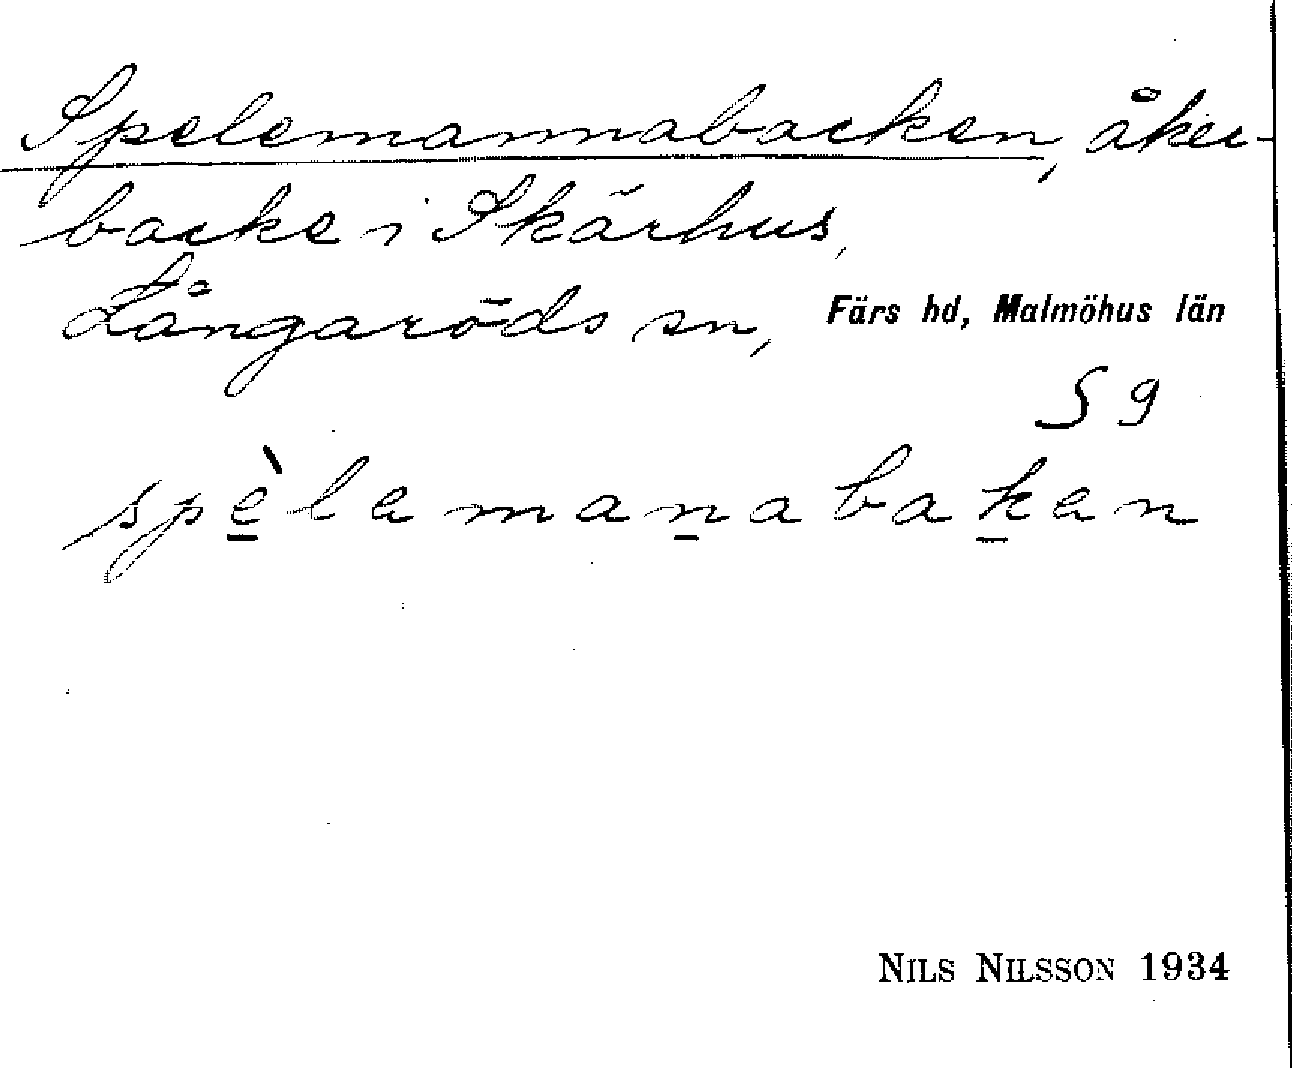 Spelemannabacken, åker-
backe i Skärhus,
Långaröds sn, Färs hd, Malmöhus län
S 9
spè̱lemaṉabaḵen
NILS NILSSON 1934